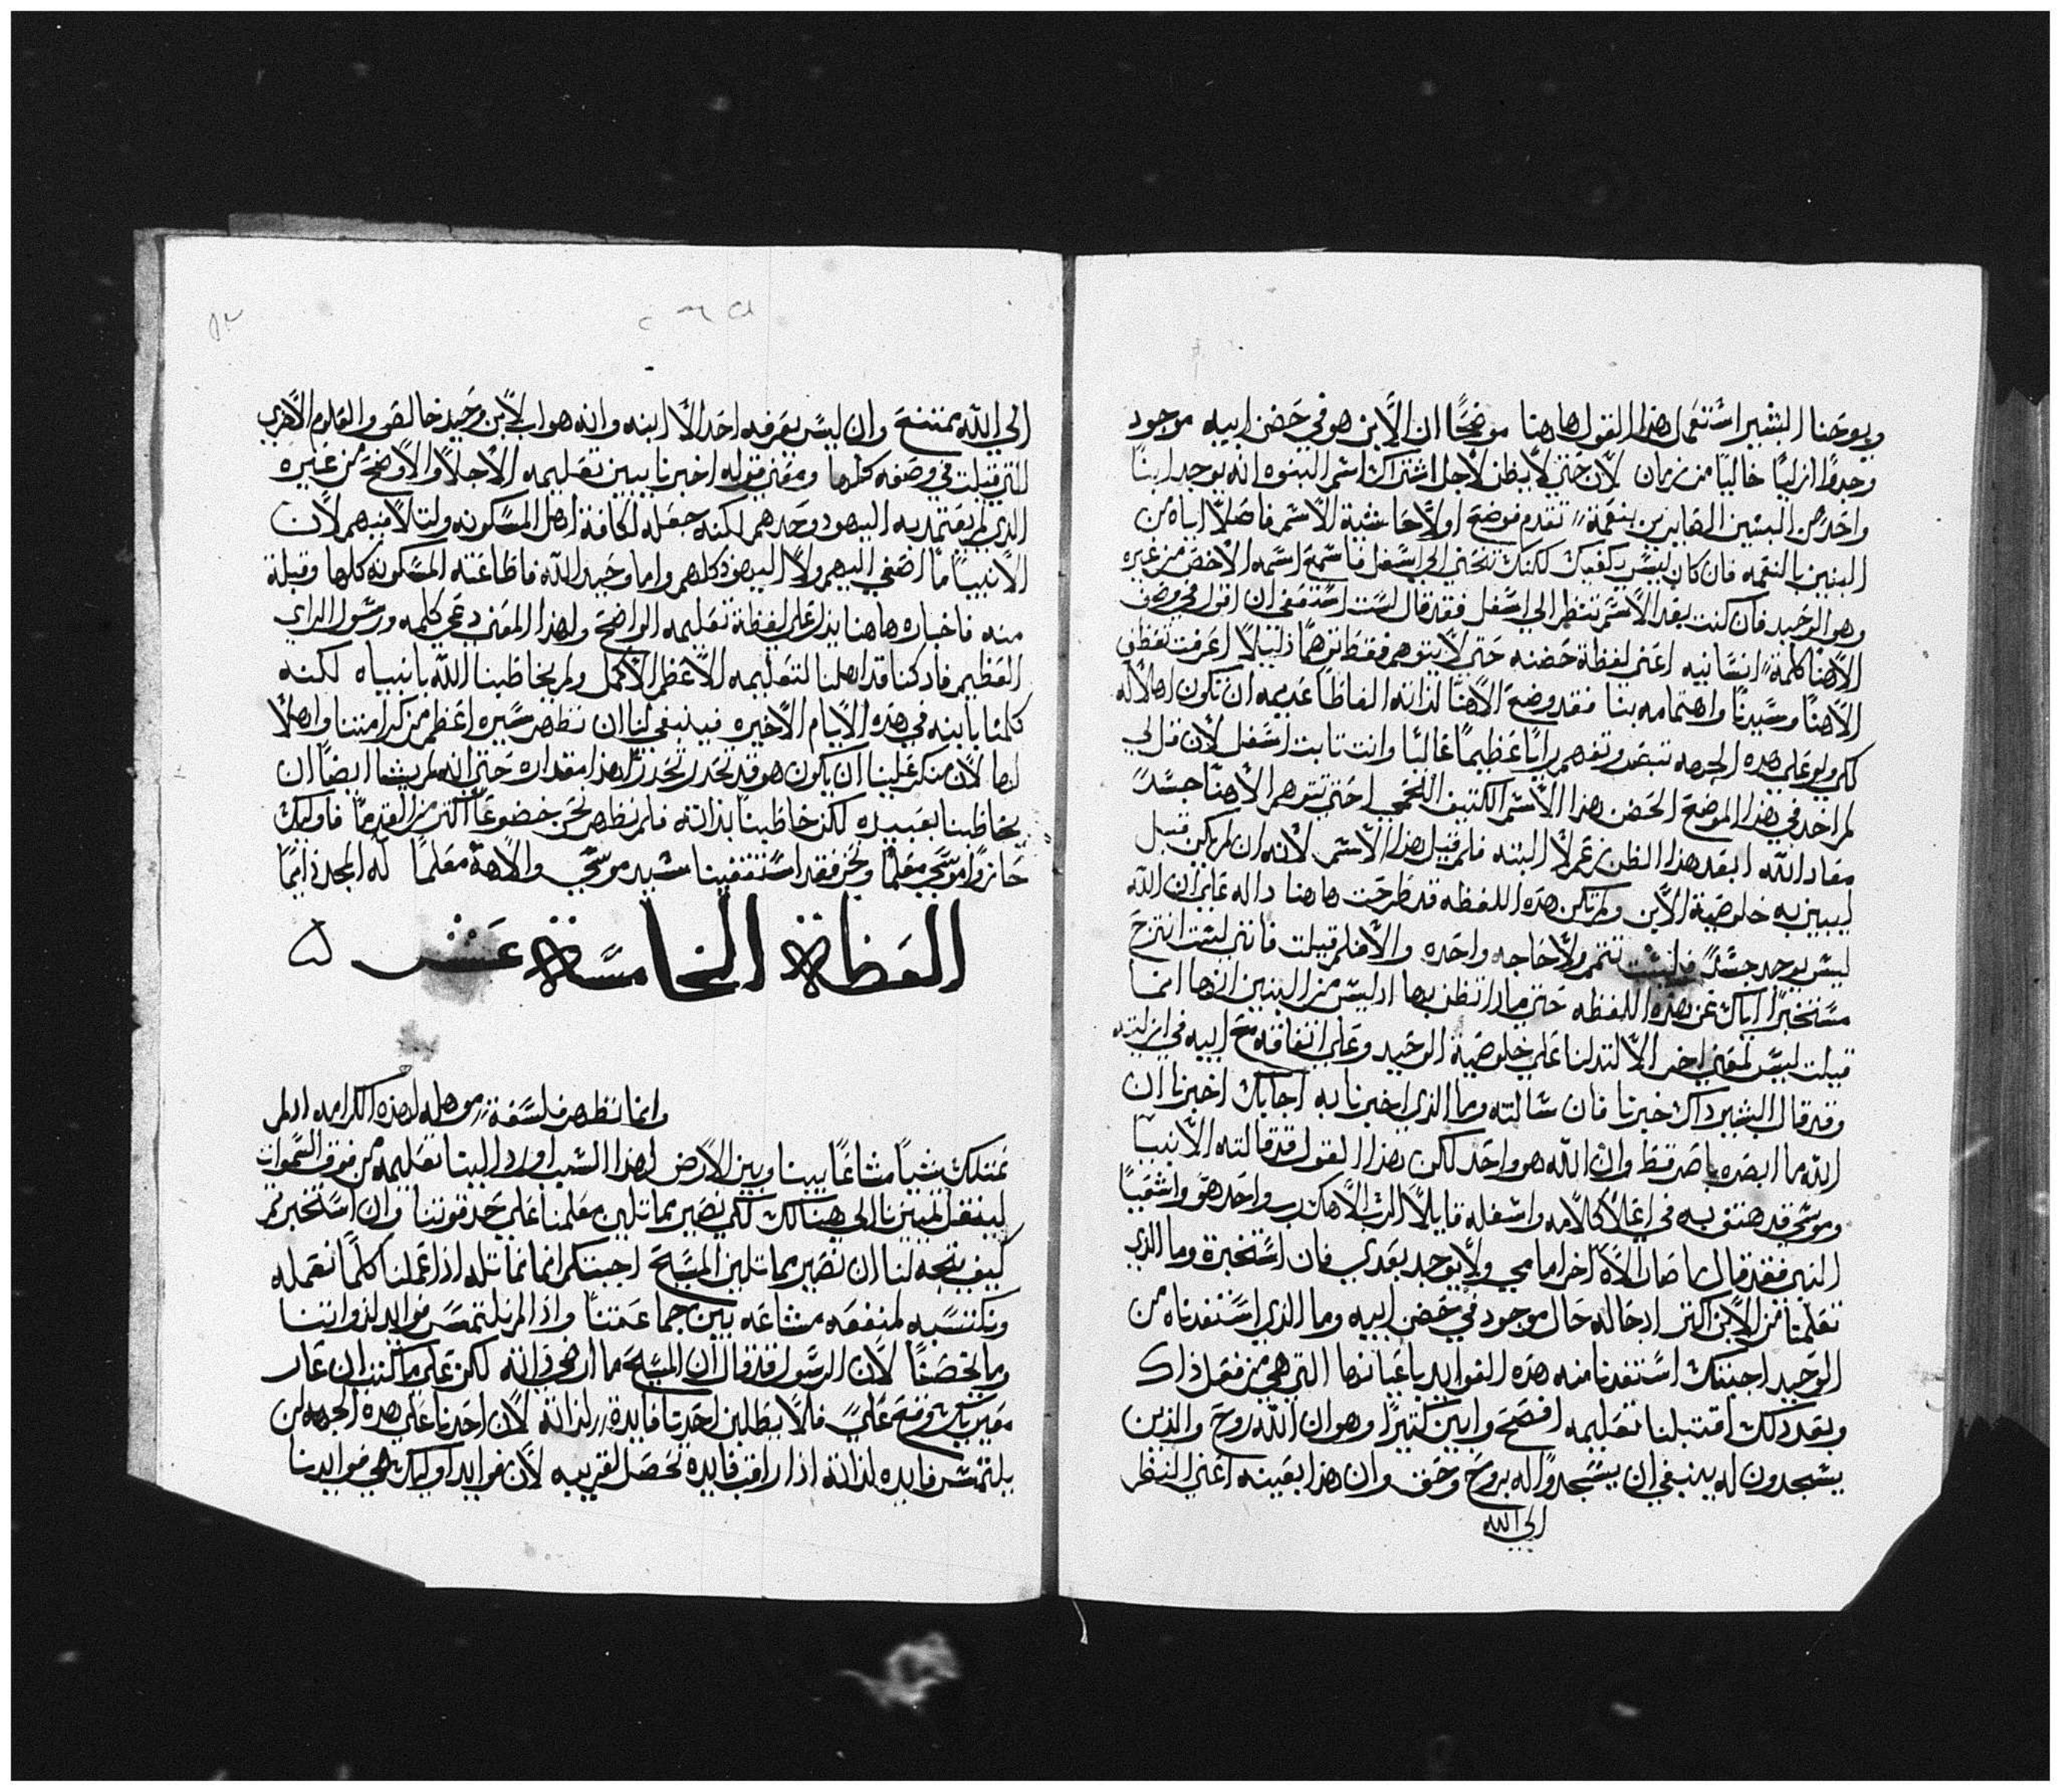 ويوحنا البشير استعمل هذا القول هاهنا موضحًا ان الابن هو في حضن ابيه موجود
وجودًا ازليًا خاليًا من زمان لان حتي لا يظن لاجل اشتراك اسم البنوه انه يوجد ابنًا
واحد من البنين الصايرين بنعمة تقدم فوضع اولًا حاشية الاسم فاصلًا اياه من
البنين بالنعمه فان كان ليس يكفيك لكنك تنحني الي اسفل فاسمع اسمه الاخص من غيره
وهو الوحيد فان كنت بعد الاسم تنظر الي اسفل فقد قال لست استعفي ان اقول في وصف
الاهنا كلمة انسانيه اعني لفظة حضنه حتي لا يتوهم فقط توهمًا ذليلًا اعرفت تعطف
الاهنا وسيدنا واهتمامه بنا فقد وضع الاهنا لذاته الفاظًا عديمه ان تكون اهلًا له
لكي ولو علي هذه الجهه تبصر وتفهم رايًا عظيمًا عاليًا وانت ثابت اسفل لان قل لي
لم اخذ في هذا الموضع الحضن هذا الاسم الكثيف اللحمي احتي نتوهم الاهنا جسدً
معاد الله ابعد هذا الظن نعم لا البته فلم قيل هذا الاسم لانه ان لم يكن قيل
ليبين به خلوصية الابن ولم تكن هذه اللفظه قد طرحت هاهنا داله علي ان الله
ليس يوجد جسدً فليست تتم ولا حاجه واحده والا فلم قيلت فانني لست انتزح
مستخبرًا اياك عن هذه اللفظه حتي ماذا تظن بها اذ ليس من البين انها انما
قيلت ليس لمعني اخر الا لتدلنا علي خلوصية الوحيد وعلي اتفاقه مع ابيه في ازليته
وقد قال البشير ذاك خبرنا فان سالته وما الذي اخبرنا به اجابك اخبرنا ان
الله ما ابصره باصر قط وان الله هو واحد لكن هذا القول قد قالته الانبيا
وموسي قد هتف به في اعلا كلامه واسفله قايلًا الرب الاهك رب واحد هو واشعيا
النبي فقد قال ما صار الاه اخر امامي ولا يوجد بعدي فان استخبرة وما الذي
تعلمنا من الابن اكثر اذ حاله حال موجود في حضن ابيه وما الذي استفدناه من
الوحيد اجبتك استفدنا منه هذه الفوايد باعيانها التي هي من فعل ذاك
وبعد ذلك اقتبلنا تعليمه افصح وابين كثيرًا وهو ان الله روح والذين
يسجدون له ينبغي ان يسجدوا له بروح وحق وان هذا بعينه اعني النظر
الي الله
٥٢
الي الله ممتنع وان ليس يعرفه احد الا ابنه وانه هو اب لابن وحيد خالص والعلوم الاخري
التي قيلت في وصفه كلها ومعني قوله اخبرنا يبين تعليمه الاجلا والاوضح من غيره
الذي لم يعتمد به اليهود وحدهم لكنه جعله لكافة اهل المسكونه ولتلاميهم لان
الانبيا ما اصغي اليهم ولا اليهود كلهم واما وحيد الله فاطاعته المسكونه كلها وقبلة
منه فاخباره هاهنا يدل علي لفظة تعليمه الواضح ولهذا المعني دعي كلمه ورسول الراي
العظيم فاذ كنا قد اهلنا لتعليمه الاعظم الاكمل ولم يخاطبنا الله بانبياه لكنه
كلمنا بابنه في هذه الايام الاخيره فينبغي لنا ان نظهر سيره اعظم من كرامتنا واهلًا
لها لان منكر علينا ان يكون هو قد تحدر تحدرًا هذا مقداره حتي انه لم يشا ايضًا ان
يخاطبنا بعبيده لكن خاطبنا بذاته فلم نظهر نحن خضوعًا اكثر من القدما فاوليك
حازوا موسي معلمًا ونحن فقد استقفينا سيد موسي والاهة معلمًا له المجد دايمًا
العظاة الخامسة عشر
وانما نظهر فلسفة موهله لهذه الكرامه اذ لم
نمتلك شيًا مشاعًا بيننا وبين الارض لهذا السبب اورد الينا تعليمه من فوق السموات
لينتقل تمييزنا الي هنالك لكي نصير مماثلين معلمنا علي حد قوتنا وان استخبرتم
كيف يتجه لنا ان نصير مماثلين المسيح اجبتكم انما نماثله اذا عملنا كلما نعمله
ونكتسبه لمنفعه مشاعه بين جماعتنا واذا لم نلتمس فوايد لذواتنا
وما يخصنا لان الرسول قد قال ان المسيح ما ارضي ذاته لكن علي ما كتب ان عار
معيريك وقع علي فلا يطلبن احدنا فايدة لذاته لان احدنا علي هذه الجهه لن
يلتمس فايده لذاته اذا راقب فايدة تحصل لقريبه لان فوايد اوليك هي فوايدنا